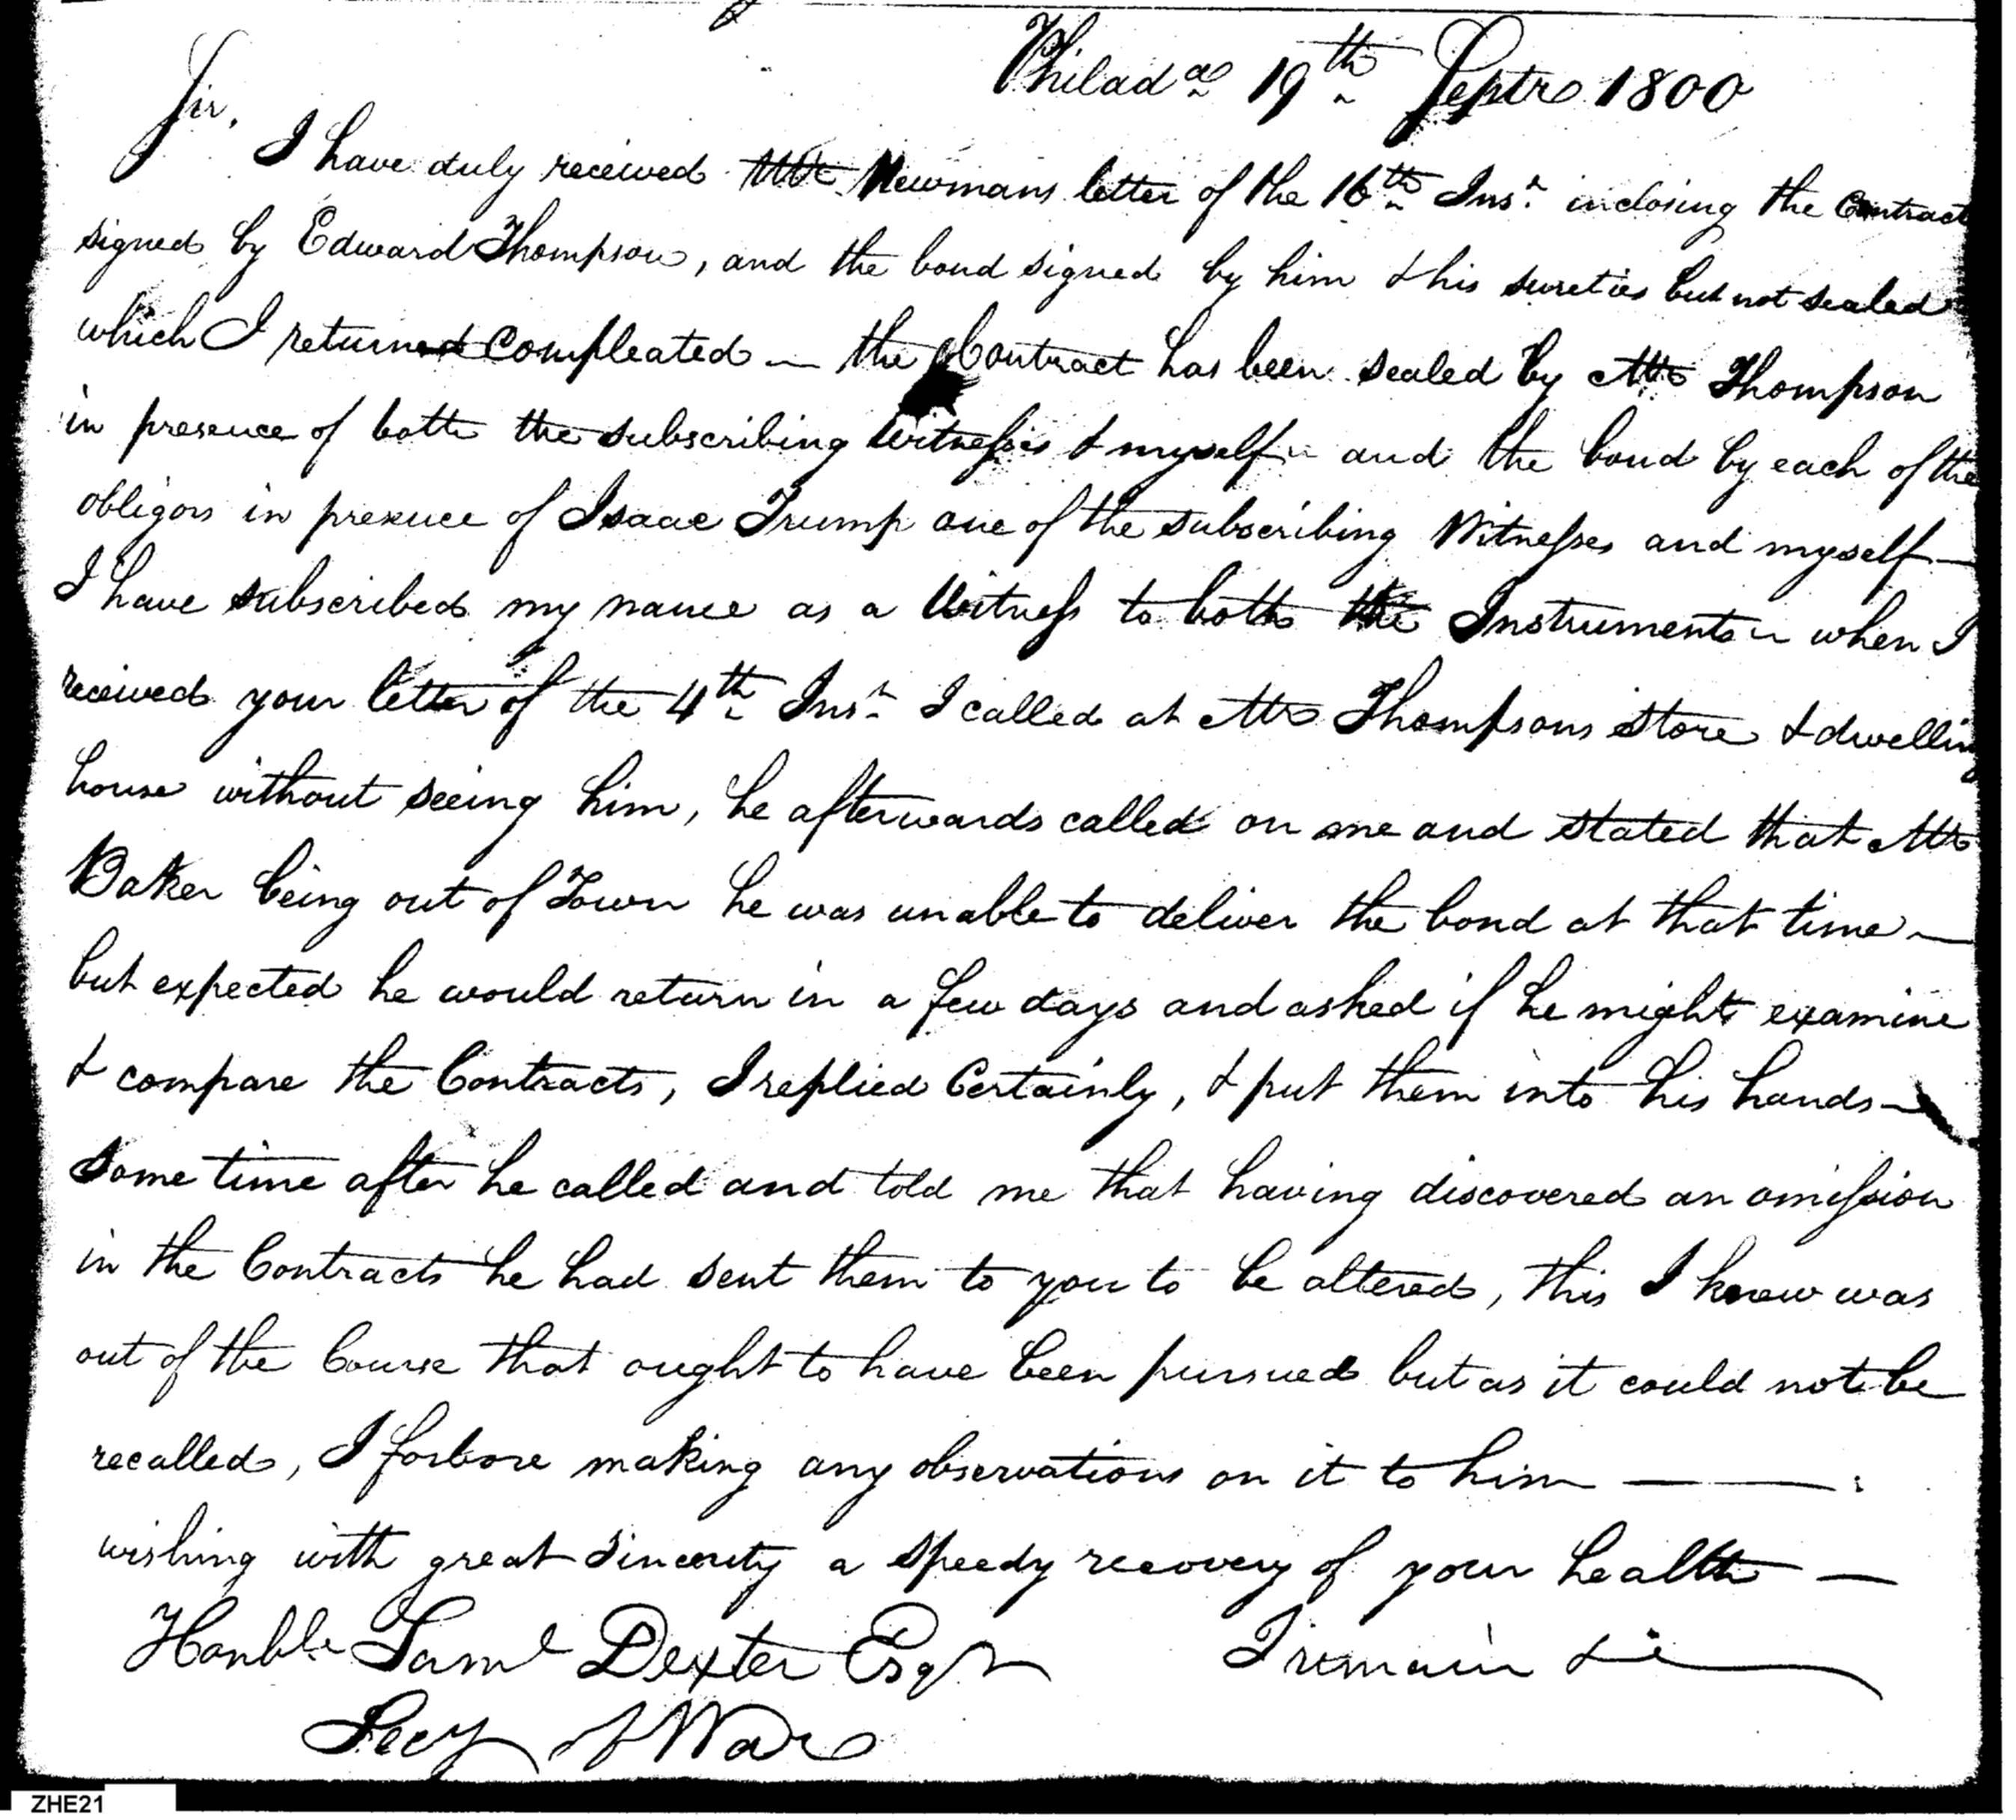 Philada 19th Septr 1800
Sir,
I have duly received Mr Newmans letter of the 16th Inst inclosing the Contract
signed by Edward Thompson, and the bond signed by him & his sureties but not sealed
which I return compleated — the Contract has been sealed by Mr Thompson
in presence of both the subscribing Witnesses & myself — and the bond by each of the
obligors in presence of Isaac Trump one of the subscribing Witnesses and myself —
I have subscribed my name as a Witness to both the Instruments — when I
received your letter of the 4th Inst I called at Mr Thompsons store & dwelling
house without seeing him, he afterwards called on me and stated that Mr
Baker being out of Town he was unable to deliver the bond at that time —
but expected he would return in a few days and asked if he might examine
& compare the Contracts, I replied Certainly, & put them into his hands —
some time after he called and told me that having discovered an omission
in the Contracts he had sent them to you to be altered, this I knew was
out of the Course that ought to have been pursued but as it could not be
recalled, I forbore making any observations on it to him —
wishing with great sincerity a speedy recovery of your health —
Honble Saml Dexter Esqr I remain &c
Secy of War
ZHE21